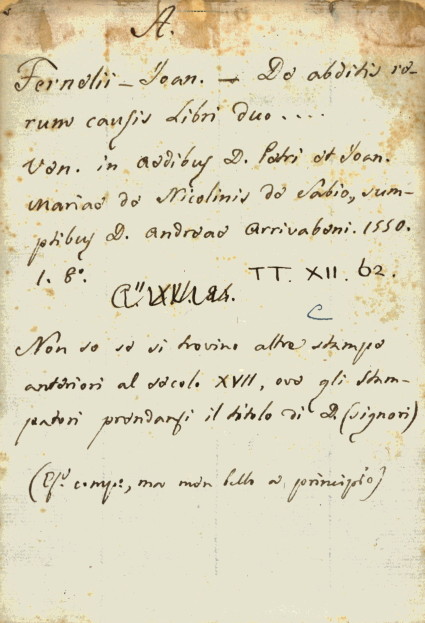 A.
Fernelii - Joan. - De abditis re-
rum causis Libri duo....
Ven. in aedibus D. Petri et Joan.
Mariae de Nicolinis de Sabio, sum-
ptibus D. Andreae Arrivabeni. 1550.
1. 8°. TT. XII. 62.
C
Non so se si trovino altre stampe
anteriori al secolo XVII, ove gli stam-
patori prendansi il titolo di D. (signori)
(Es. comp., ma non bello a principio)